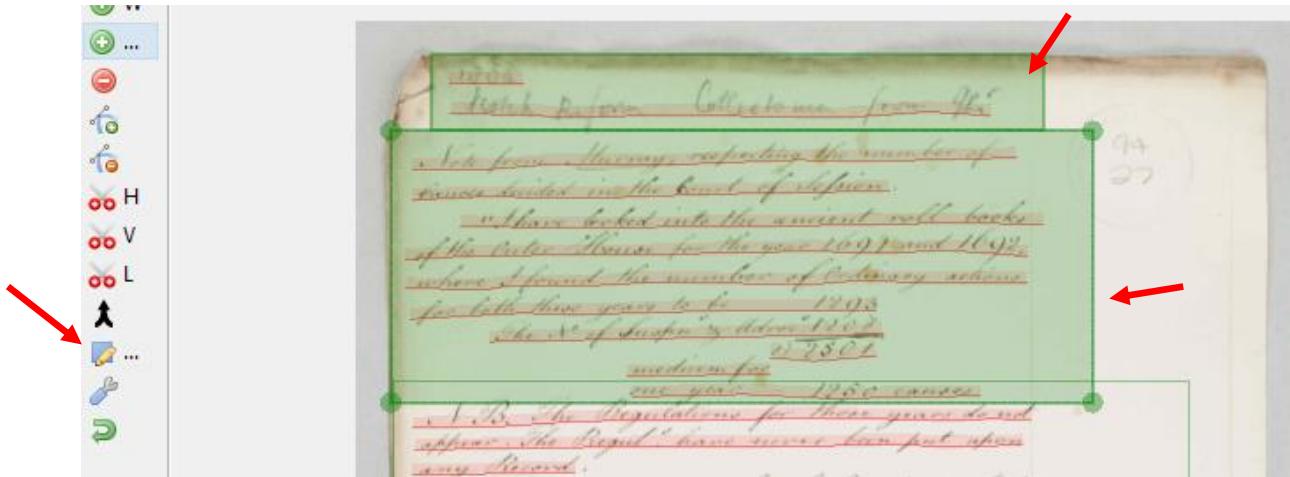 W
...
...
H
V
L
from
94
27
Note from Murray, respecting the number of
causes decided in the Court of Session.
"I have looked into the ancient roll books
of the Outer House for the year 1691 and 1692,
where I found the number of Ordinary actions
for both these years to be 1293
The No of
2501
medium for
one year 1250 causes
N.B. The Regulations for those years do not
appear. The Regul.s have never been put upon
any Record.